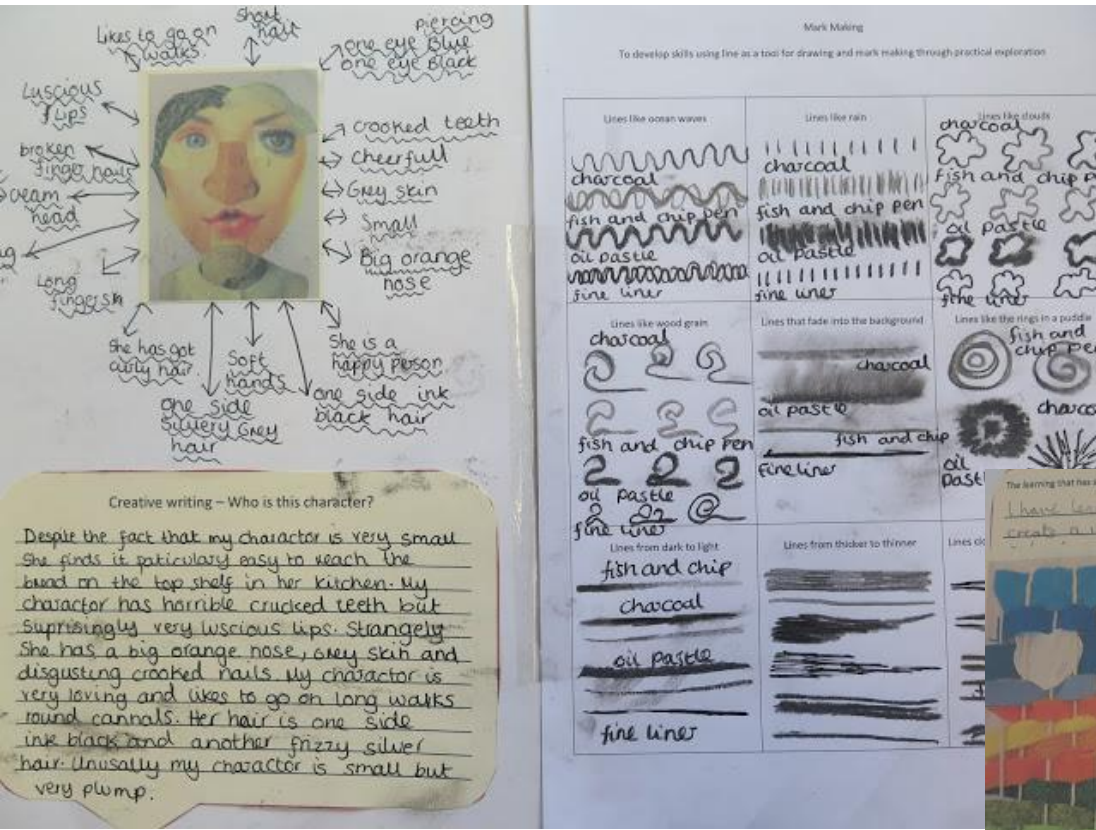 Likes to go on
walks
short
hair
piercing
one eye Blue
one eye Black
Luscious
lips
crooked teeth
broken
finger nails
cheerfull
cream
head
Grey skin
Small
Long
Big orange
nose
She has got
curly hair.
Soft
hands
She is a
happy person
one side
Silvery Grey
hair
one side ink
black hair
Creative writing – Who is this character?
Despite the fact that my charactor is very small
She finds it paticulary easy to reach the
bread on the top shelf in her kitchen. My
charactor has horrible crucked teeth but
Suprisingly very luscious lips. Strangely
She has a big orange nose, Grey skin and
disgusting crooked nails. My charactor is
very loving and likes to go on long walks
round cannals. Her hair is one side
ink black and another frizzy silver
hair. Unusally my charactor is small but
very plump.
Mark Making
To develop skills using line as a tool for drawing and mark making through practical exploration
Lines like ocean waves
charcoal
fish and chip pen
oil pastle
fine liner
Lines like rain
charcoal
fish and chip pen
oil pastle
fine liner
Lines like clouds
charcoal
fish and chip
oil pastle
fine liner
Lines like wood grain
charcoal
fish and chip pen
oil pastle
fine liner
Lines that fade into the background
charcoal
oil pastle
fish and chip
fine liner
Lines like the rings in a puddle
fish and
chip pen
oil
Lines from dark to light
fish and chip
charcoal
oil pastle
fine liner
Lines from thicker to thinner
Lines
The learning that has
I have
create a